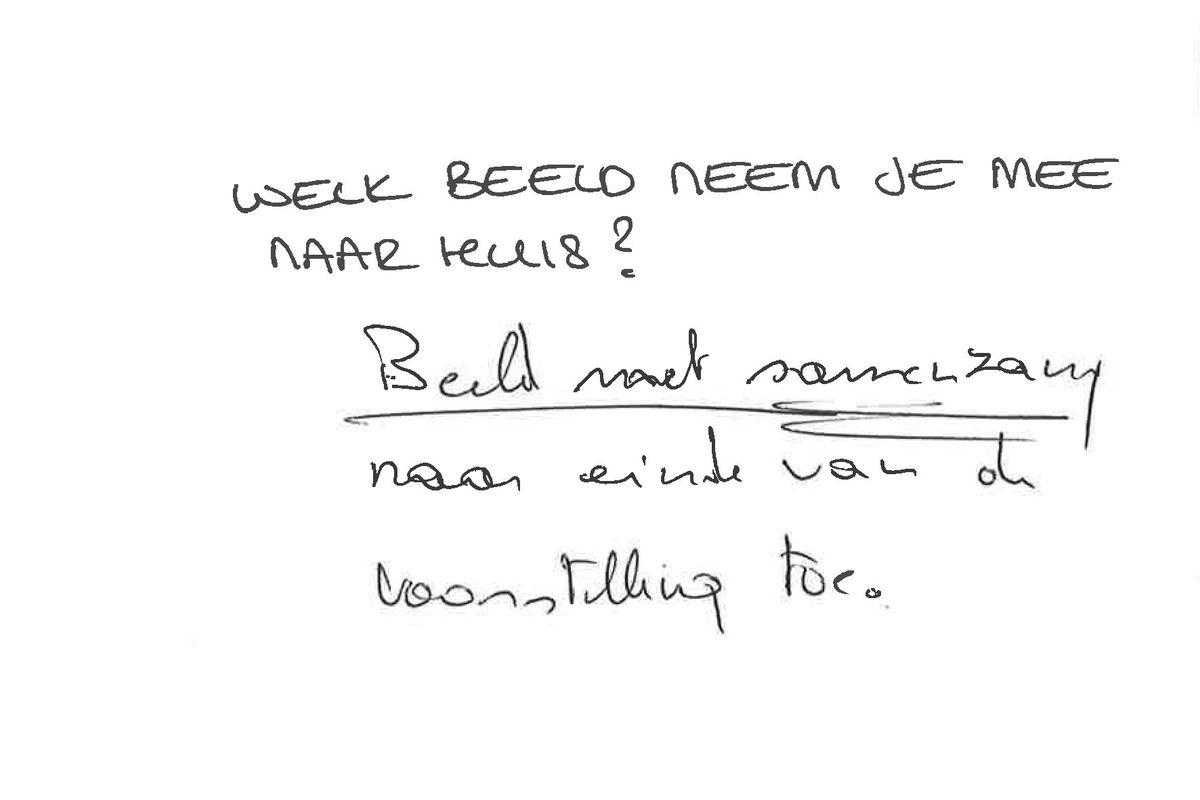 WELK BEELD NEEM JE MEE
NAAR HUIS?
Beeld met samenzang
naar einde van de
voorstelling toe.